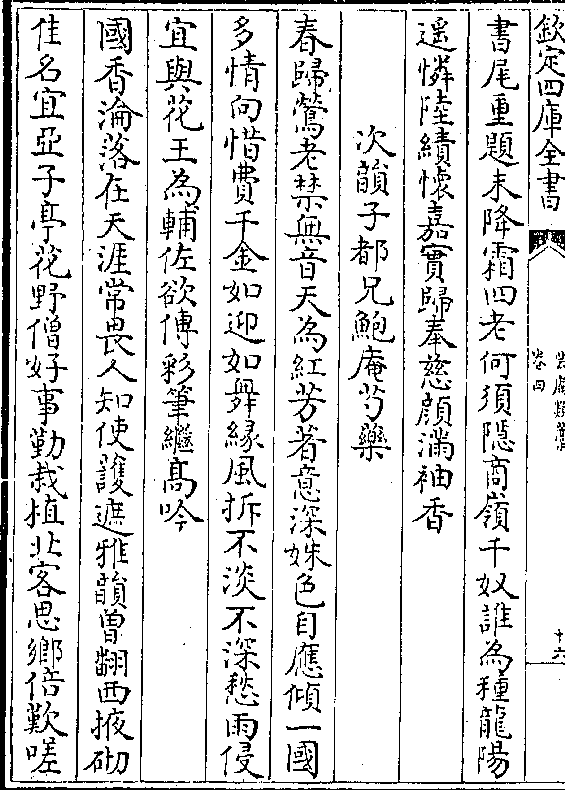 欽定四庫全書
卷四
十六
書尾重題未降霜四老何須隠商嶺千奴誰為種龍陽
遥憐陸績懷嘉實歸奉慈顔滿袖香
次韻子都兄鮑庵芍藥
春歸鶯老禁無音天為紅芳著意深姝色自應傾一國
多情向惜費千金如迎如舞緣風拆不淡不深愁雨侵
宜與花王為輔佐欲傳彩筆繼高吟
國香淪落在天涯常畏人知使護遮雅韻曽翻西掖砌
佳名宜亞子亭花野僧好事勤栽植北客思鄉倍歎嗟